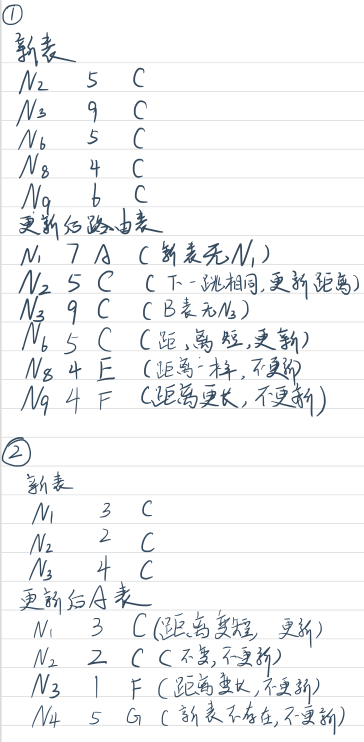 ①
新表
N₂ 5 C
N₃ 9 C
N₆ 5 C
N₈ 4 C
N₉ 6 C
更新后路由表
N₁ 7 A (新表无N₁)
N₂ 5 C (下一跳相同,更新距离)
N₃ 9 C (B表无N₃)
N₆ 5 C (距离短,更新)
N₈ 4 E (距离一样,不更新)
N₉ 4 F (距离更长,不更新)
②
新表
N₁ 3 C
N₂ 2 C
N₃ 4 C
更新后A表
N₁ 3 C (距离变短,更新)
N₂ 2 C (不变,不更新)
N₃ 1 F (距离变长,不更新)
N4 5 G (新表不存在,不更新)